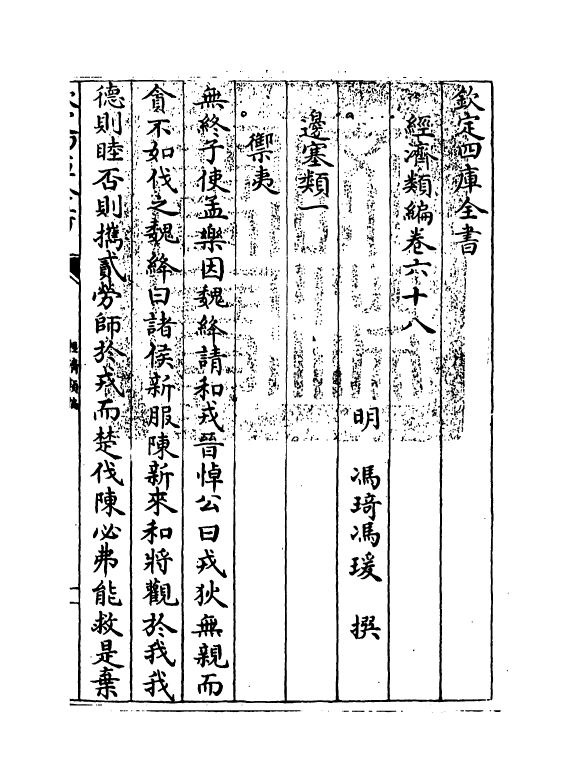 欽定四庫全書
經濟類編卷六十八
明　馮琦馮瑗　撰
邊塞類一
禦夷
無終子使孟樂因魏絳請和戎晉悼公曰戎狄無親而
貪不如伐之魏絳曰諸侯新服陳新來和將觀於我我
德則睦否則攜貳勞師於戎而楚伐陳必弗能救是棄